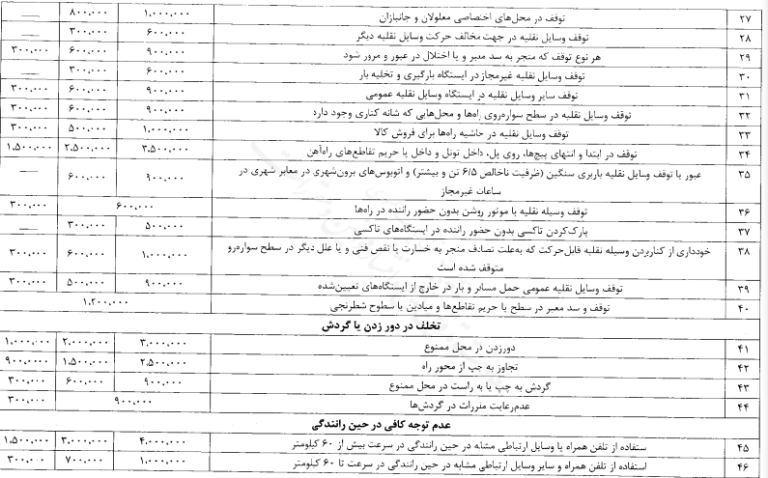 ۲۷ توقف در محل‌های اختصاصی معلولان و جانبازان ۱،۰۰۰،۰۰۰ ۸۰۰،۰۰۰ ——
۲۸ توقف وسایل نقلیه در جهت مخالف حرکت وسایل نقلیه دیگر ۶۰۰،۰۰۰ ۳۰۰،۰۰۰ ——
۲۹ هر نوع توقف که منجر به سد معبر و یا اختلال در عبور و مرور شود ۹۰۰،۰۰۰ ۶۰۰،۰۰۰ ۳۰۰،۰۰۰
۳۰ توقف وسایل نقلیه غیرمجاز در ایستگاه بارگیری و تخلیه بار ۶۰۰،۰۰۰ ۳۰۰،۰۰۰
۳۱ توقف سایر وسایل نقلیه در ایستگاه وسایل نقلیه عمومی ۹۰۰،۰۰۰ ۶۰۰،۰۰۰ ۳۰۰،۰۰۰
۳۲ توقف وسایل نقلیه در سطح سواره‌روی راه‌ها و محل‌هایی که شانه کناری وجود دارد ۹۰۰،۰۰۰ ۶۰۰،۰۰۰ ۳۰۰،۰۰۰
۳۳ توقف وسایل نقلیه در حاشیه راه‌ها برای فروش کالا ۱،۰۰۰،۰۰۰ ۵۰۰،۰۰۰ ۳۰۰،۰۰۰
۳۴ توقف در ابتدا و انتهای پیچ‌ها، روی پل، داخل تونل و داخل یا حریم تقاطع‌های راه‌آهن ۳،۵۰۰،۰۰۰ ۲،۵۰۰،۰۰۰ ۱،۵۰۰،۰۰۰
۳۵ عبور یا توقف وسایل نقلیه باربری سنگین (ظرفیت ناخالص ۶/۵ تن و بیشتر) و اتوبوس‌های برون‌شهری در معابر شهری در ۹۰۰،۰۰۰ ۶۰۰،۰۰۰ ——
ساعات غیرمجاز
۳۶ توقف وسیله نقلیه با موتور روشن بدون حضور راننده در راه‌ها ۶۰۰،۰۰۰ ۳۰۰،۰۰۰
۳۷ پارک‌کردن تاکسی بدون حضور راننده در ایستگاه‌های تاکسی ۵۰۰،۰۰۰ ۳۰۰،۰۰۰ ——
۳۸ خودداری از کناربردن وسیله نقلیه قابل‌حرکت که به‌علت تصادف منجر به خسارت یا نقص فنی و یا علل دیگر در سطح سواره‌رو ۱،۰۰۰،۰۰۰ ۶۰۰،۰۰۰ ۳۰۰،۰۰۰
متوقف شده است
۳۹ توقف وسایل نقلیه عمومی حمل مسافر و بار در خارج از ایستگاه‌های تعیین‌شده ۹۰۰،۰۰۰ ۵۰۰،۰۰۰ ۳۰۰،۰۰۰
۴۰ توقف و سد معبر در سطح یا حریم تقاطع‌ها و میادین یا سطوح شطرنجی ۱،۲۰۰،۰۰۰
تخلف در دور زدن یا گردش
۴۱ دورزدن در محل ممنوع ۳،۰۰۰،۰۰۰ ۲،۰۰۰،۰۰۰ ۱،۰۰۰،۰۰۰
۴۲ تجاوز به چپ از محور راه ۲،۵۰۰،۰۰۰ ۱،۵۰۰،۰۰۰ ۹۰۰،۰۰۰
۴۳ گردش به چپ یا به راست در محل ممنوع ۹۰۰،۰۰۰ ۶۰۰،۰۰۰ ۳۰۰،۰۰۰
۴۴ عدم‌رعایت مقررات در گردش‌ها ۹۰۰،۰۰۰ ۳۰۰،۰۰۰
عدم توجه کافی در حین رانندگی
۴۵ ستفاده از تلفن همراه یا وسایل ارتباطی مشابه در حین رانندگی در سرعت بیش از ۶۰ کیلومتر ۴،۰۰۰،۰۰۰ ۳،۰۰۰،۰۰۰ ۱،۵۰۰،۰۰۰
۴۶ استفاده از تلفن همراه و سایر وسایل ارتباطی مشابه در حین رانندگی در سرعت تا ۶۰ کیلومتر ۱،۰۰۰،۰۰۰ ۷۰۰،۰۰۰ ۳۰۰،۰۰۰